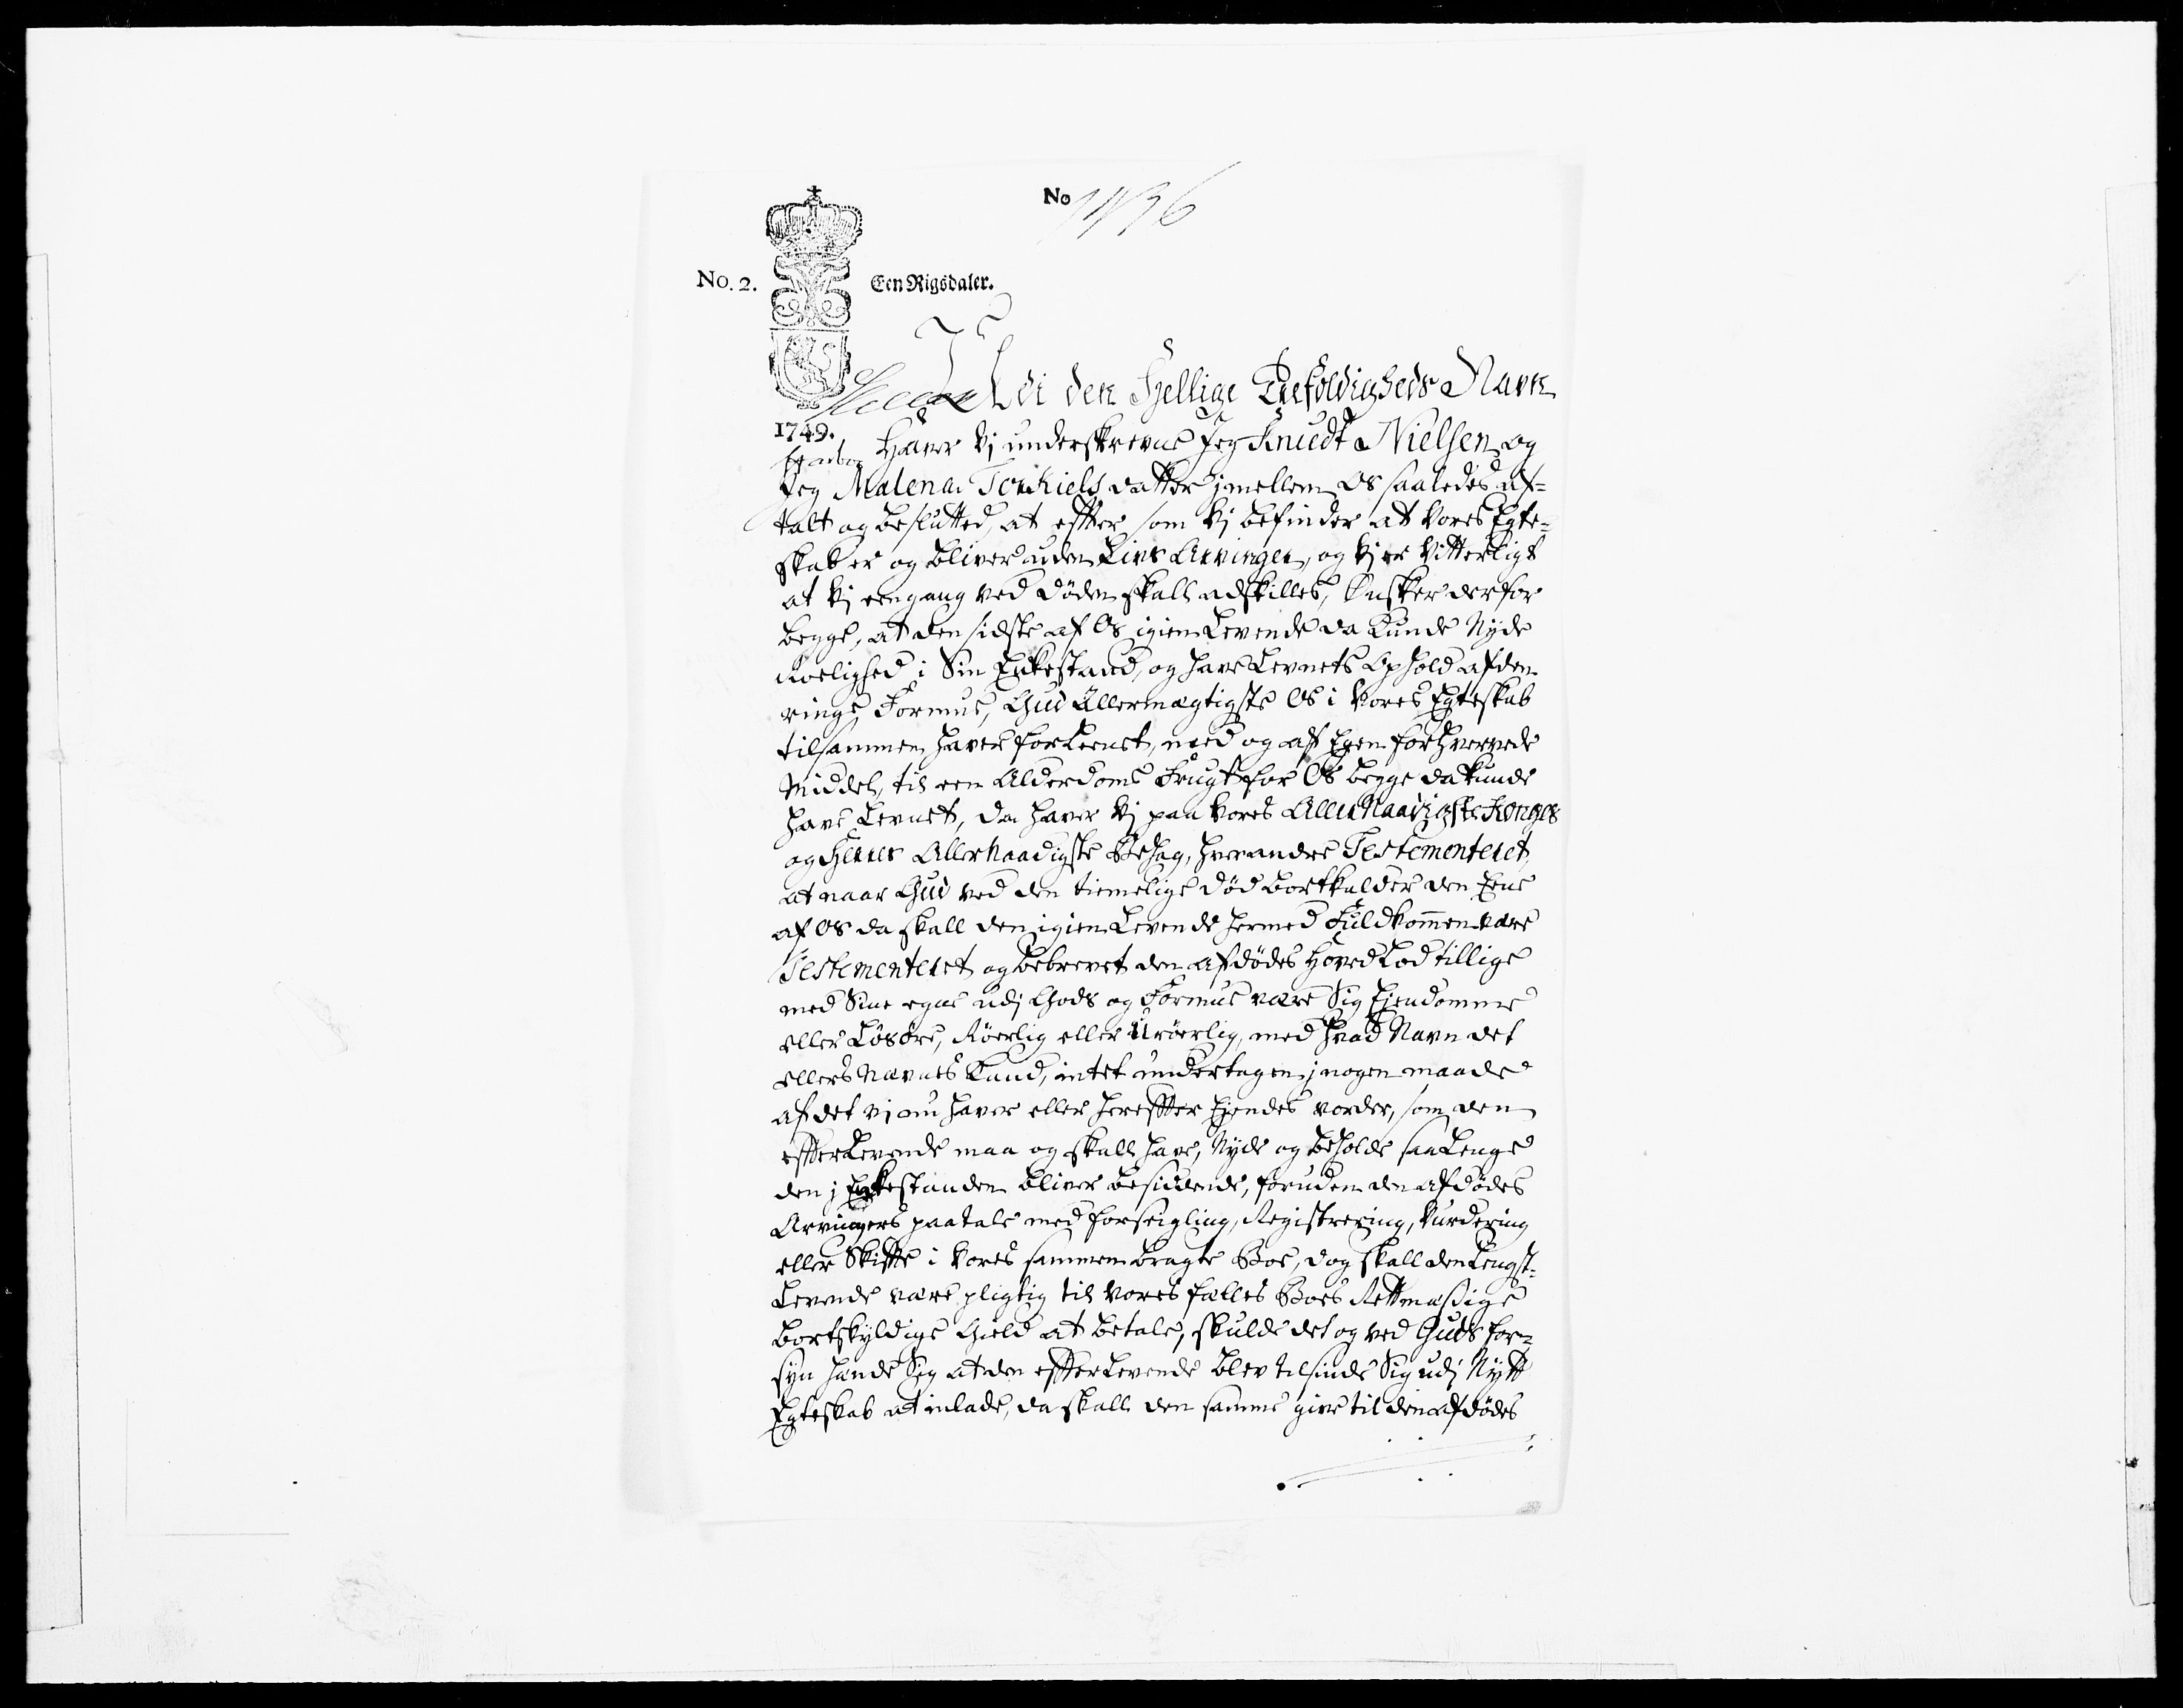 No 1436
No. 2.
Een Rigsdaler.
Udi den Hellige Trefoldigheds Navn
1749.
Haver Vj underskrevne Jeg Knudt Nielsen og
Jeg Malena Torkiels datter jmellem Os saaledes af=
talt og beslutted, at effter som Vj befinder at Vores Egte=
skab er og bliver uden Livs Arvinger, og Vj er Vitterligt
at Vj eengang ved Døden skall adskilles, Ønsker derfor
begge, at den sidste af Os igien Levende da Kunde Nyde
Roelighed i Sin Enkestand, og have Levnets Ophold af den
ringe Formue, Gud Allermægtigste Os i Vores Egteskab
tilsammen haver forLeenet, med og af Egen forhvervede
Middel, til een Alderdoms Frugt for Os begge da kunde
have Levnet, da haver Vj paa Vores AllerNaadigste Konges
og Herres AllerNaadigste Behag, hverandre Testementeret,
at naar Gud ved den timelige død bortkalder den Eene
af Os da skall den igien Levende hermed Fuldkommen være
Testementeret og bebrevet den afdødes Hoved Lod tillige
med Sine egne udj Gods og Formue være Sig Ejendomme
eller Løsøre, Røerlig eller Urøerlig, med hvad Navn det
ellers Nævnes Kand, intet undertagen j nogen maade
af det vj nu haver eller hereffter Ejendes vorder, som den
effterLevende maa og skall have, Nyde og beholde saa Lenge
den j Enkestanden bliver besiddende, foruden den afdødes
Arvingers paatale med forseigling, Registrering, Vurdering
eller Skiffte i Vores sammenbragte Boe, dog skall den Lengst=
Levende være pligtig til Vores fælles Boes Rettmæssige
bortskyldige Gield at betale, skulde det og ved Guds for=
syn hænde Sig at den effterLevende blev tilsinde Sig udj Nytt
Egteskab at inlade, da skall den samme give til den afdødes